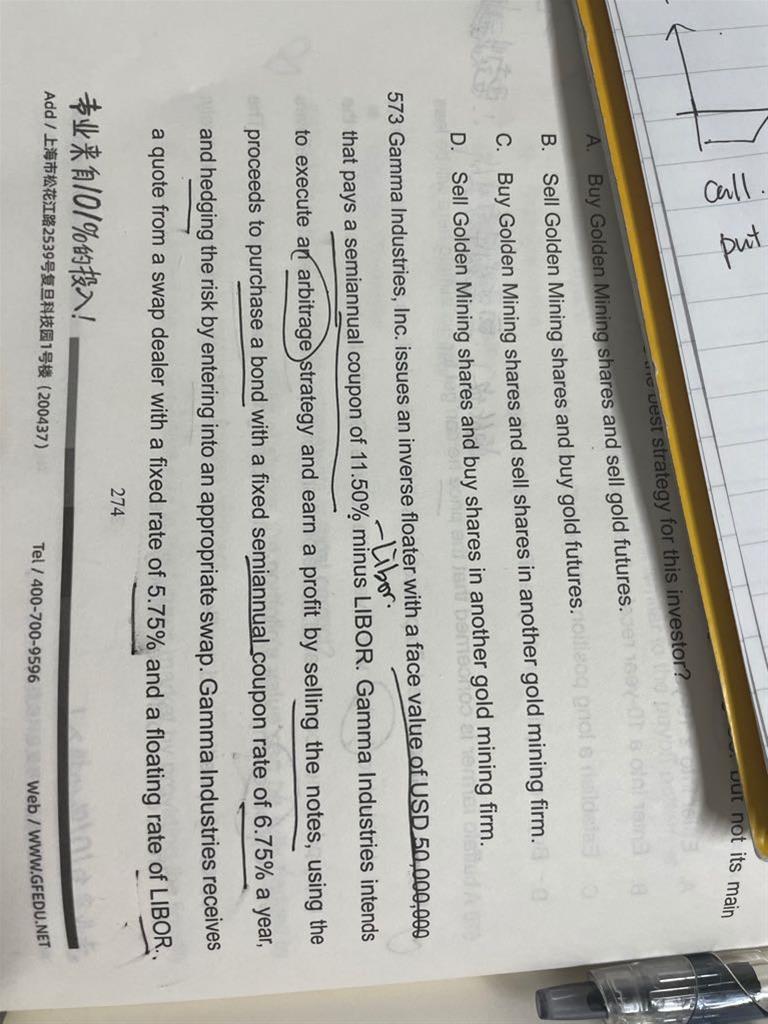 call.
put
but not its main
best strategy for this investor?
A. Buy Golden Mining shares and sell gold futures.
B. Sell Golden Mining shares and buy gold futures.
C. Buy Golden Mining shares and sell shares in another gold mining firm.
D. Sell Golden Mining shares and buy shares in another gold mining firm.
573 Gamma Industries, Inc. issues an inverse floater with a face value of USD 50,000,000
that pays a semiannual coupon of 11.50% minus LIBOR. Gamma Industries intends
-Libor.
to execute an arbitrage strategy and earn a profit by selling the notes, using the
proceeds to purchase a bond with a fixed semiannual coupon rate of 6.75% a year,
and hedging the risk by entering into an appropriate swap. Gamma Industries receives
a quote from a swap dealer with a fixed rate of 5.75% and a floating rate of LIBOR.
274
专业来自101%的投入!
Add / 上海市松花江路2539号复旦科技园1号楼 (200437) Tel / 400-700-9596 Web / WWW.GFEDU.NET